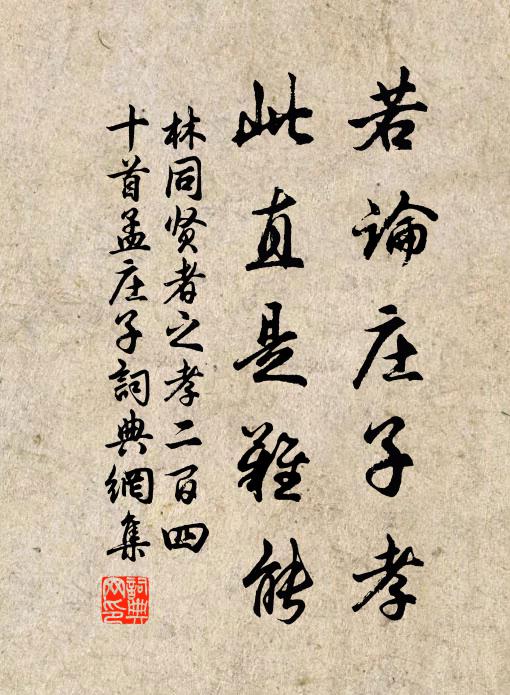 若論庄子孝
此直是難能
林同贤者之孝二百四
十首孟庄子詞典網集